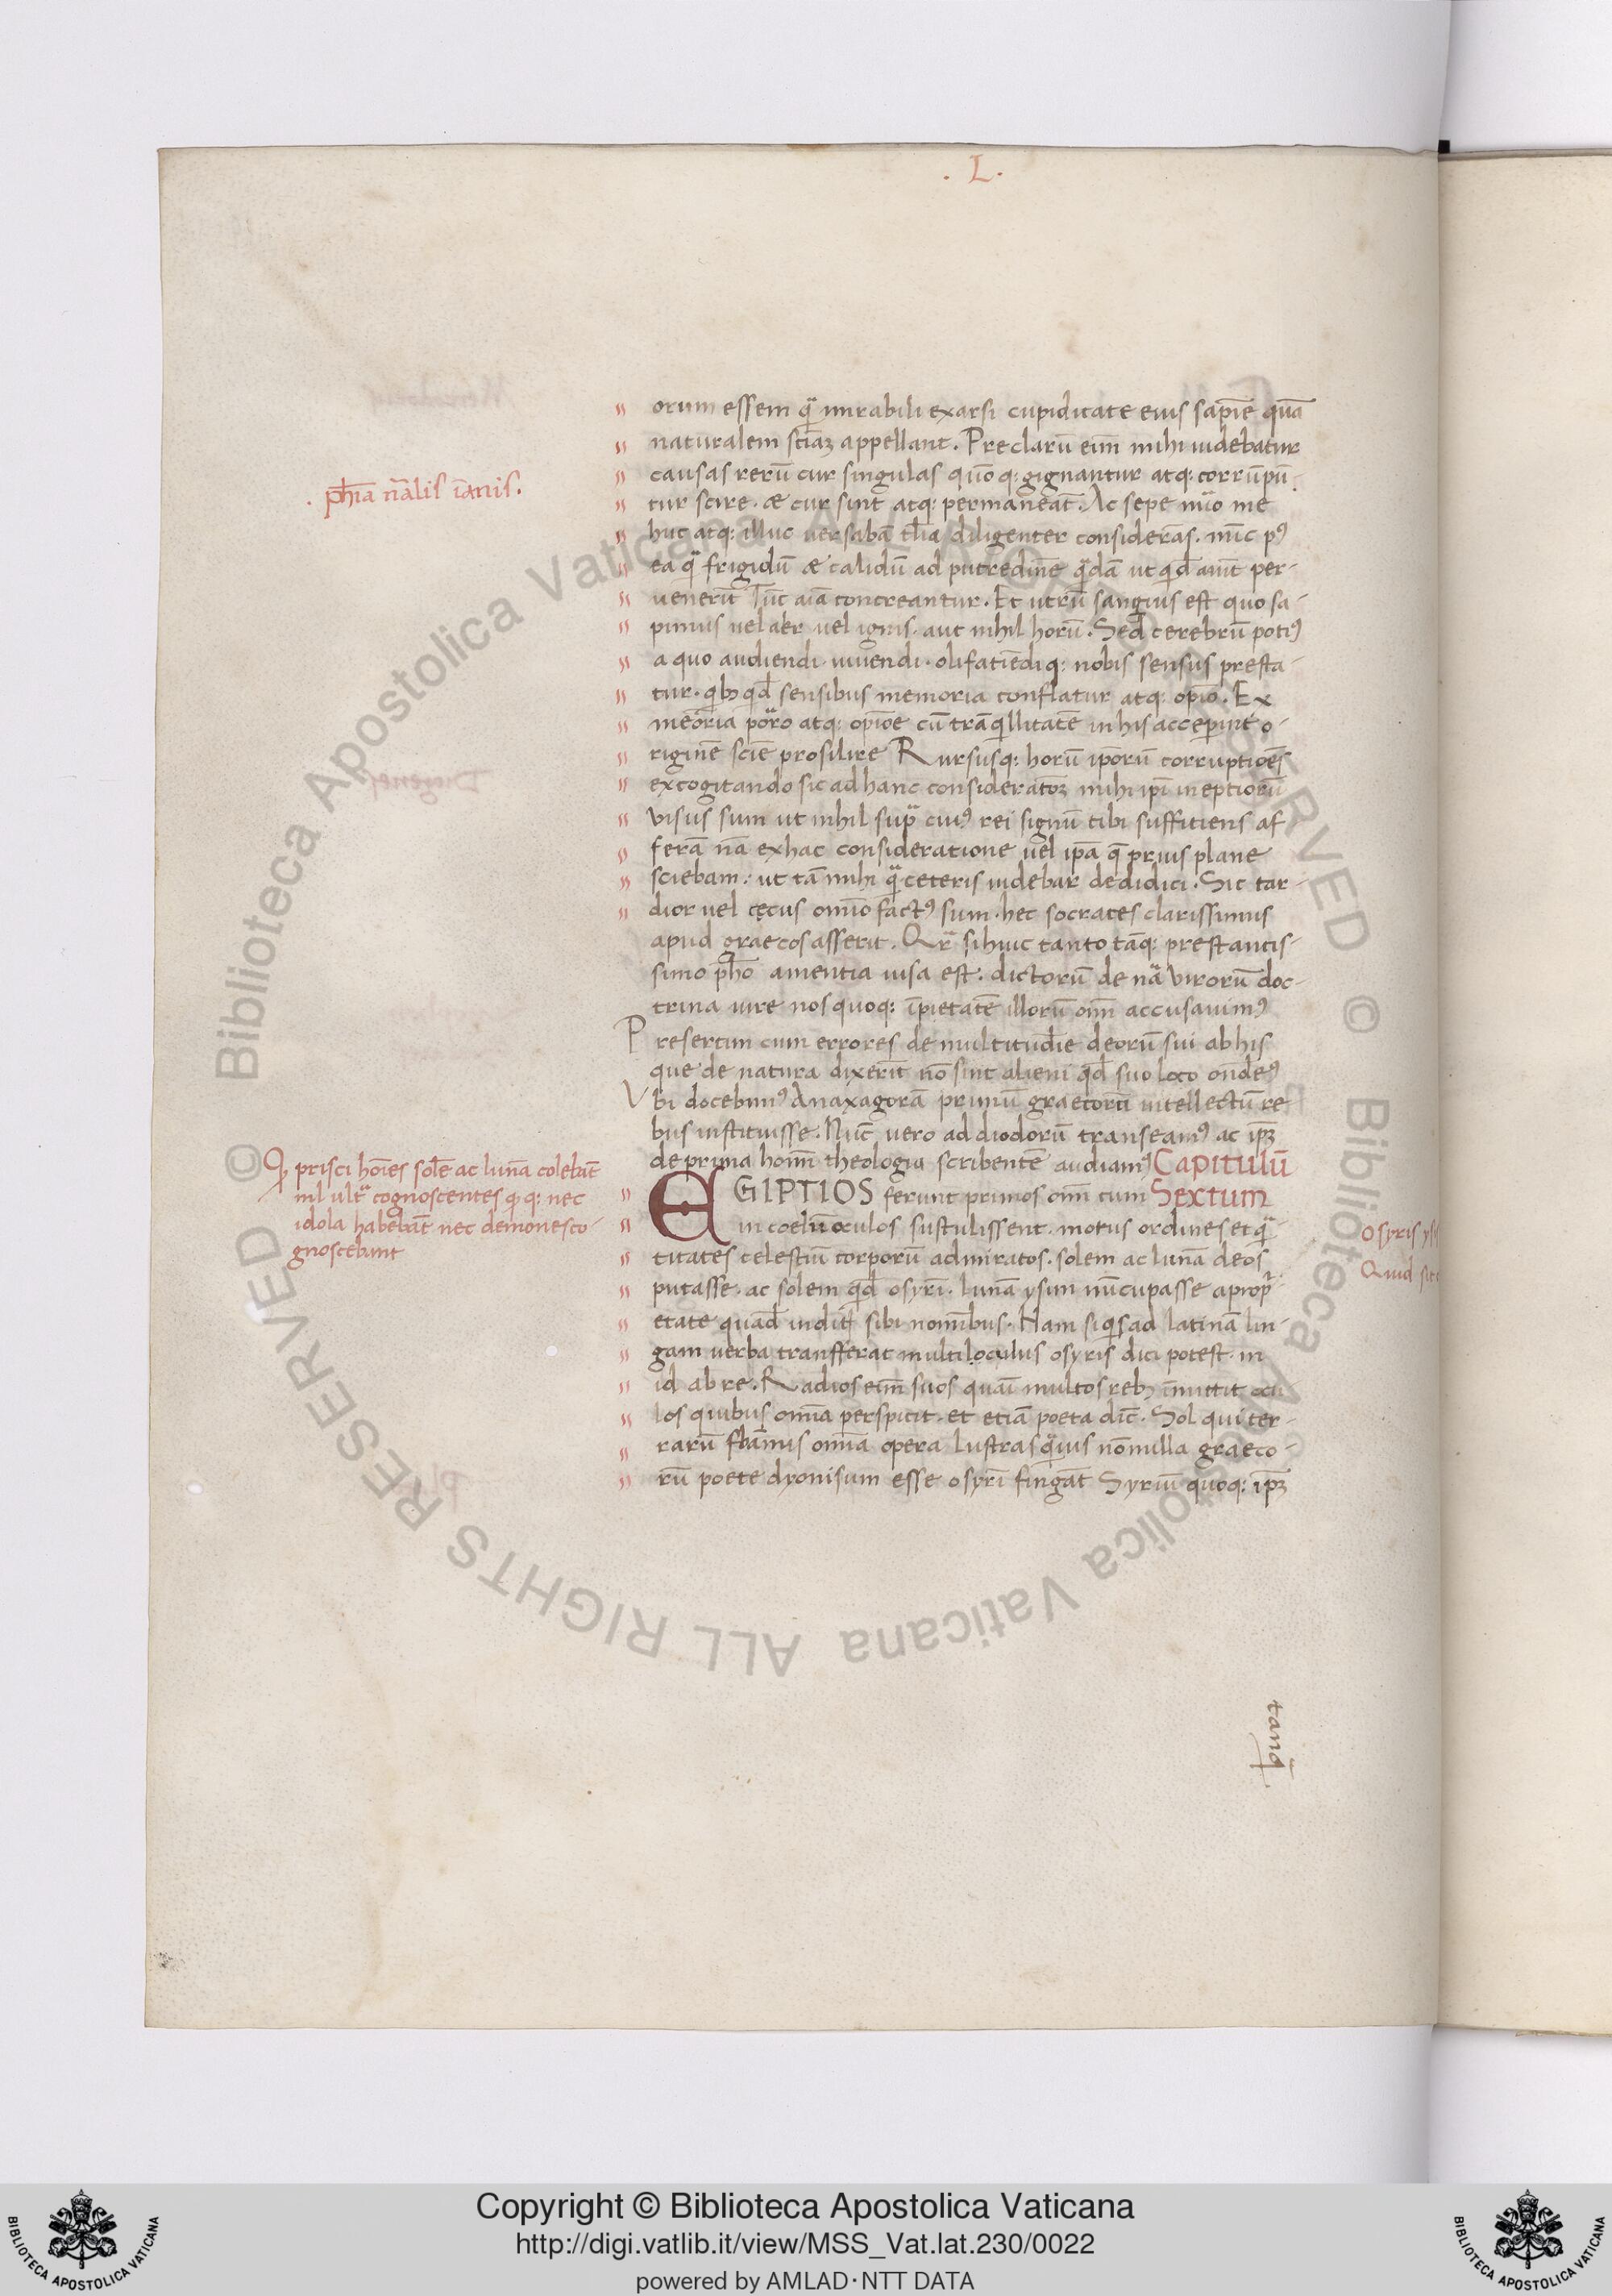 . L .
orum essem q̄ mirabili exarsi cupiditate eius sapīe quā
naturalem sciaꝫ appellant. Preclarū eīm mihi uidebatur
causas rerū cur singulas quōq: gignantur atq: corrūpū
. phīa nālis īanis.
tur scire. æ cur sint atq: permaneāt. Ac sepe nūo me
huc atq: illuc uersabā tl̄ia diligenter considerās. nūc pꝰ
ea q̄ frigidū æ calidū ad putredinē q̄dā ut qd̄ aiūt per-
uenerūt Tūc aīa concreantur. Et utrū sanguis est quo sa-
pimus uel aer uel ignis. aut nihil horū. Sed cerebrū potiꝰ
a quo audiendi. uiuendi. olifatiēdiq: nobis sensus presta-
tur. qbꝫ qd̄ sensibus memoria conflatur atq: opīo. Ex
meōria porro atq: opīoe cū trāqllitatē in his acceperint o-
riginē sciē prosilire Rursusq: horū ipōrū corruptiōes
excogitando sic ad hanc consideratōꝫ mihi ipī ineptiorū
visus sum ut nihil sup̄ cuiꝰ rei signū tibi suffitiens af
ferā nā ex hac consideratione uel ipā q̄ prius plane
sciebam: ut tā mihi q̄ ceteris uidebar dedidici. Sic tar-
dior uel cęcus omīo factꝰ sum. hec socrates clarissimus
apud graecos asserit. Qr̄ si huic tanto tāq: prestantis-
simo pħo amentia uisa est. dictorū de nā̄ virorū doc-
trina iure nos quoq: īpietatē illorū om̄ accusauimꝰ
Presertim cum errores de multitudīe deorū sui ab his
que de natura dixerīt nō sint alieni qd̄ suo loco ondeꝰ
Vbi docebimꝰ Anaxagorā primū graecorū intellectū re
bus instituisse. Nūc uero ad diodorū transeamꝰ ac ipꝫ
de prima homī theologia scribentē audiamꝰ Capitulū
Ꝙ prisci hoīes solē ac lunā colebāt
nl ultᵃ cognoscentes q q: nec
idola habebāt nec demones co-
gnoscebant
EGIPTIOS ferunt primos om̄ cum Sextum
in coelū oculos sustulissent. motus ordines et q̄-
Osyris ysi
titates celestiū corporū admiratos. solem ac lunā deos
Quid sit
putasse. ac solem qd̄ osyrī. lunā ysim nūcupasse a propⁱ-
etate quad̄ indit̄ sibi nomībus. Nam si qs ad latinā lin-
gam uerba transferat multiloculus osyris dici potest. in
id ab re. Radios eīm suos quasi multos rebꝫ īmittit ocu
los quibus omīa perspicit. et etiā poeta dīc. Sol qui ter-
rarū flāmis omīa opera lustras qⁱuis nōnulla graeco-
rū poete dyonisum esse osyrī fingāt Syriū quoq: ipꝫ
tanq̄.
Copyright © Biblioteca Apostolica Vaticana
http://digi.vatlib.it/view/MSS_Vat.lat.230/0022
powered by AMLAD·NTT DATA